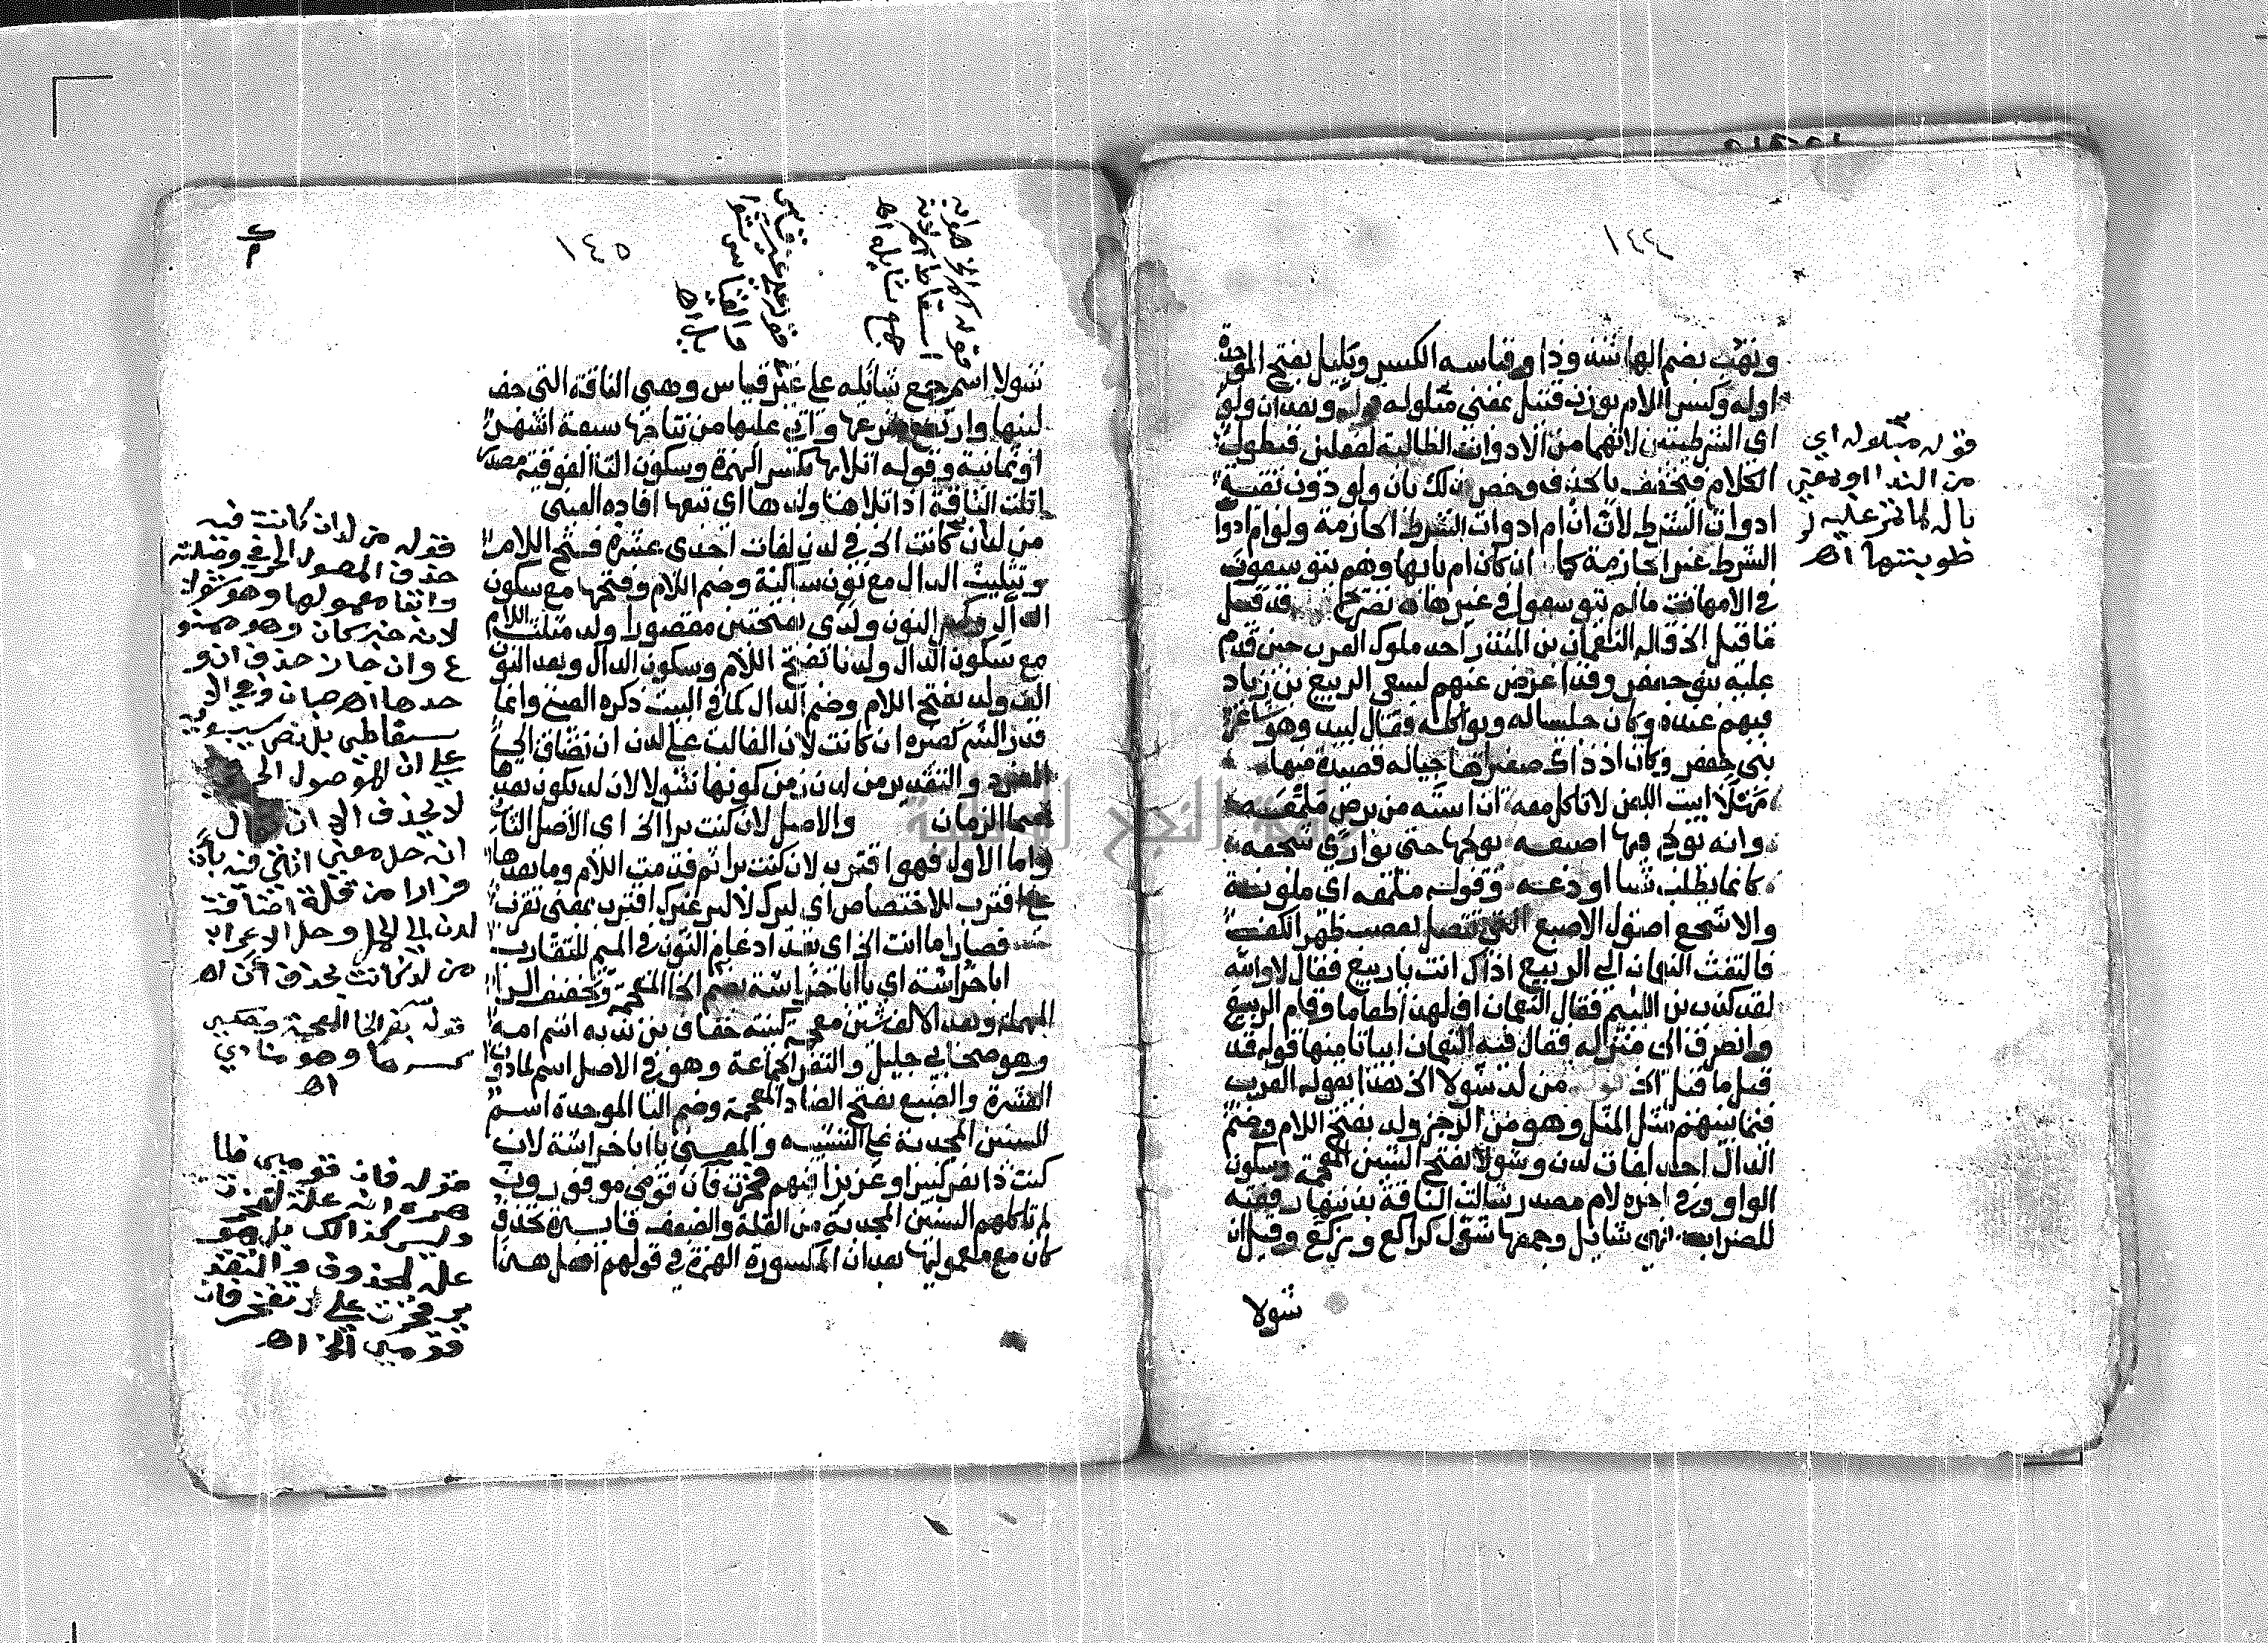 ١٤٤
ونهب بضم الها شذوذا وقياسه الكسر وبليل بفتح الموحدة
اوله وكسر اللام بوزن قتيل بمعنى مبلوله قوله وبعد ان ولو
اى الشرطيتين لانهما من الادوات الطالبة لفعلين فيطول
الكلام فيخفف بالحذف وخص ذلك بان ولو دون بقية
ادوات الشرط لان ان ام ادوات الشرط الجازمة ولو ام ادوا
الشرط غير الجازمة كما ان كان ام بابها وهم يتوسعون
في الامهات مالم يتوسعوا في غيرها قد قيل
ما قيل الخ قاله النعمان بن المنذر احد ملوك العرب حين قدم
عليه بنو جعفر وقد اعرض عنهم لسعى الربيع بن زياد
فيهم عنده وكان جليسا له ويواكله فقال لبيد وهو شاعر
بنى جعفر وكان اذ ذاك صغيرا قصيدة منها
مهلا ابيت اللعن لا تاكل معه ان استه من برص ملمعه
وانه يولج فيها اصبعه يولجها حتى يوارى شجعه
كانما يطلب شيا اودعه وقوله ملمعه اى ملونة
والاشجع اصول الاصبع التي تتصل بعصب ظهر الكف
فالتفت النعمان الى الربيع اذاك انت ياربيع فقال لا والله
لقد كذب بن اللئيم فقال النعمان اف لهذا طعاما وقام الربيع
وانصرف الى منزله فقال فيه النعمان ابياتا منها قوله قد
قيل ما قيل الخ قوله من لد شولا الخ هذا يقوله العرب
فيما بينهم مثل المثل وهو من الرجز ولد بفتح اللام وضم
الدال احدى لغات لدن وشولا بفتح الشين المعجمة وسكون
الواو وفي اخره لام مصدر شالت الناقة بذنبها رفعته
للضراب فهي شايل وجمعها شول كراكع وركع وقيل ان
شولا
قوله مبلوله اي
من الندا او بمعنى
بال لما تمر عليه
طوبتها اه
١٤٥
شولا اسم جمع شائله على غير قياس وهى الناقة التى خف
لبنها وارتفع ضرعها واتى عليها من نتاجها سبعة اشهر
او ثمانية وقوله اتلائها بكسر الهمزة وسكون التا الفوقية مصدر
اتلت الناقة اذا تلاها ولدها اى تبعها افاده العينى
من لد ان كانت الخ في لدن لغات احدى عشرة فتح اللام
وتثليث الدال مع نون ساكنة وضم اللام وفتحها مع سكون
الدال وكسر النون ولدى بفتحتين مقصورا ولد مثلث اللام
مع سكون الدال ولدنا بفتح اللام وسكون الدال وبعد النون
الف ولد بفتح اللام وضم الدال كما في البيت ذكره العينى وانما
قدر الشم كغيره ان كانت لان الغالب على لدن ان تضاف الى
المفرد والتقدير من لدن زمن كونها شولا لان لد يكون بعدها
اسما الزمان والاصل لان كنت برا الخ اى الاصل الثانى
واما الاول فهو اقترب لان كنت برا ثم قدمت اللام وما بعدها
على اقترب للاختصاص اى لبرك لا لبر غيرك اقترب بمعنى تقرب
فصار اما انت الخ اى بعد ادغام النون في الميم للتقارب
اباخراشة اى يا اباخراشة بضم الخا المعجمة وتخفيف الرا
المهملة وبعد الالف شين معجمة كنية خفاف بن ندبه اسم امه
وهو صحابي جليل والنفر الجماعة وهو في الاصل اسم لما دون
العشرة والضبع بفتح الضاد المعجمة وضم البا الموحدة اسم
للسنين المجدبة على التشبيه والمعنى يا اباخراشة لان
كنت ذا نفر كثير او عزيزا فيهم فخرت فان قومى موفورون
لم تاكلهم السنين المجدبة من القلة والضعف فايدة تحذف
كان مع معموليها بعد ان المكسورة الهمزة في قولهم افعل هذا
قوله الخ صوابه
اسقاط لانه
جمع شايله اه
قوله على غير قياس
والقياس شوا
يل اه
قوله من لد ان كانت فيه
حذف الموصول الحرفي وصلته
وابقا معمولها وهو شولا
لانه خبر كان وهو ممنو
ع وان جاز حذف ان و
حدها اه صبان وفي الد
سقاطي بل نص سيبويه
على ان الموصول الحر
لا يحذف الا ان
انه حل معنى اتى فيه بان
فرارا من قلة اضافة
لدن الى الجمل وحل الاعراب
من لد كانت بحذف ان اه
قوله بضم الخا المعجمة وحكي
كسرها وهو منادي
اه
قوله فان قومي ظا
هره انه علة لفخرت
وليس كذالك بل هو
علة لمحذوف والتقد
ير فخرت علي لا تفتخر فان
قومي الخ اه